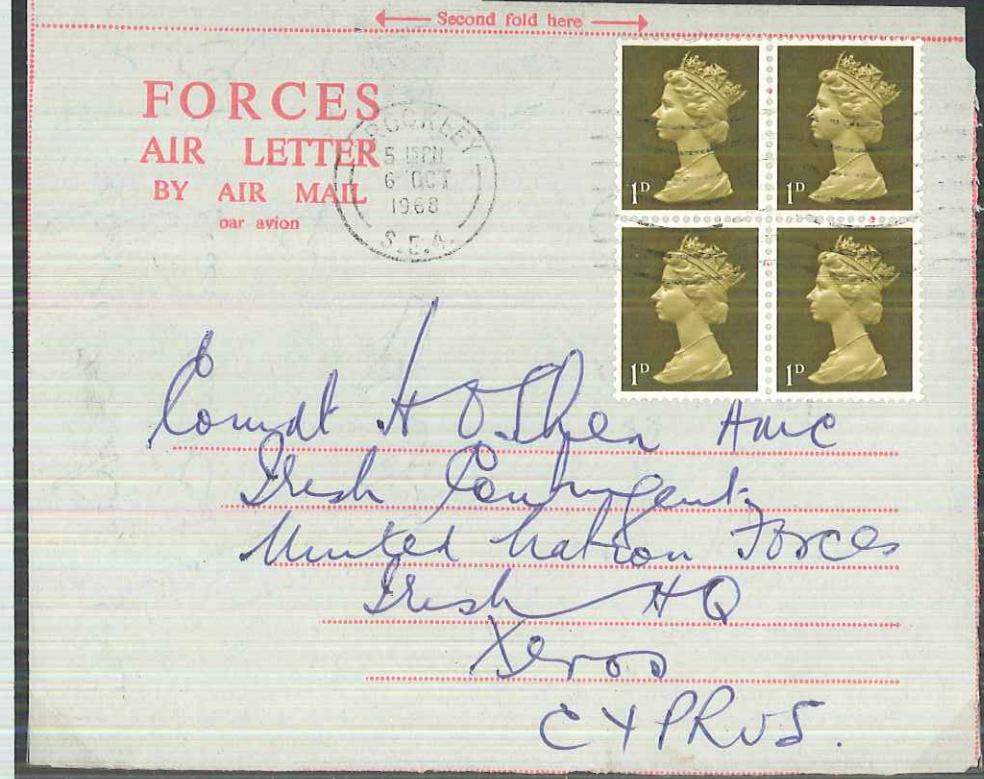 Second fold here
FORCES
AIR LETTER
BY AIR MAIL
par avion
BROCKLEY
5 15PM
6 OCT
1968
S.E.4.
1D 1D
1D 1D
Comdt H O'Shea AMC
Irish Contingent
United Nation Forces
Irish HQ
Xeros
CYPRUS.